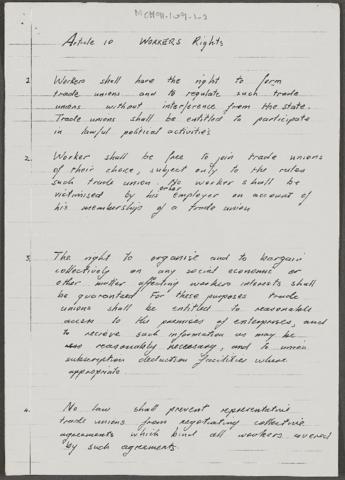 Article 10 WORKERS Rights
1. Workers shall have the right to form
trade unions and to regulate such trade
unions without interference from the state.
Trade unions shall be entitled to participate
in lawful political activities
2. Worker shall be free to join trade unions
of their choice, subject only to the rules
such trade union. No worker shall be
victimised by his employer on account of
his membership of a trade union
3. The right to organise and to bargain
collectively on any social economic or
other matter affecting workers interests shall
be guaranteed For these purposes trade
unions shall be entitled to reasonable
access to the premises of enterprises, and
to recieve such information as may be
reasonably necessary, and to union
subscription deduction facilities where
appropriate
4. No law shall prevent representative
trade unions from negotiating collective
agreements which bind all workers covered
by such agreements.